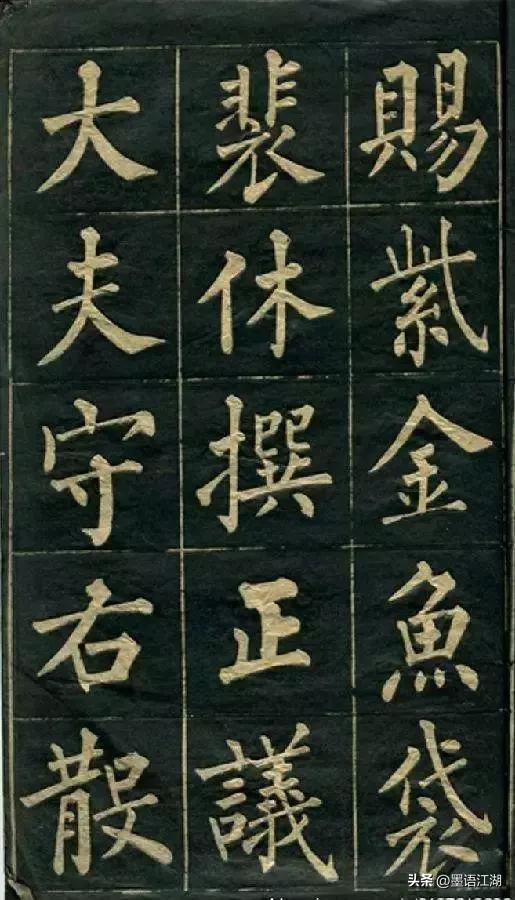 賜紫金魚袋
裴休撰正議
大夫守右散
头条 @墨语江湖